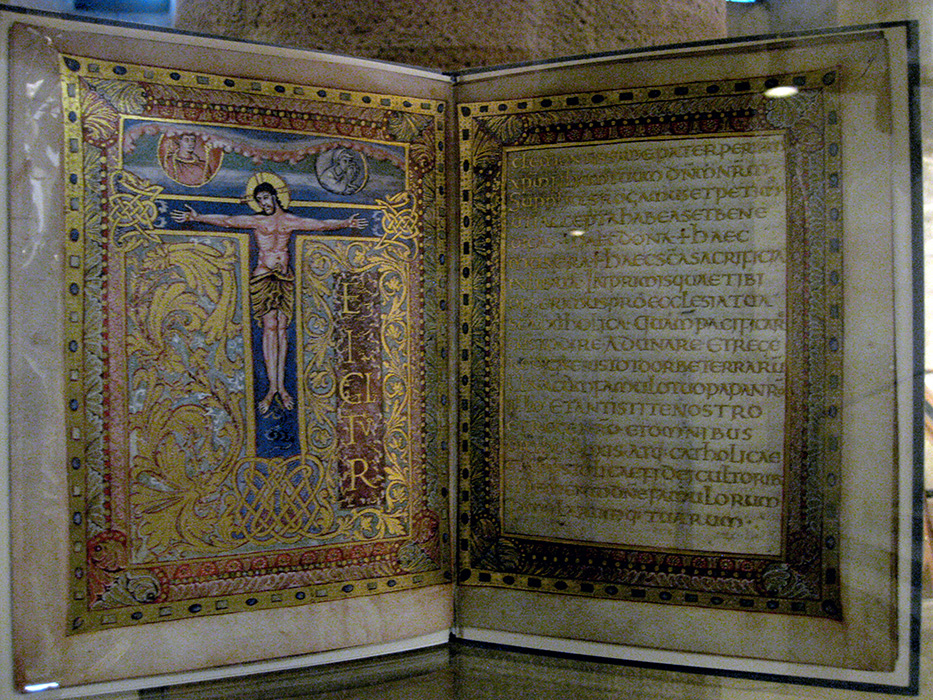 E
I
GI
TV
R
CLEMENTISSIME PATER PER IHM
XPM FILIUM TUUM DNM NRM
SUPPLICES ROGAMUS ET PETIM
ACCEPTA HABEAS ET BENE
HAEC DONA + HAEC
MUNERA + HAEC SCA SACRIFICIA
IN PRIMIS QUAE TIBI
OFFERIMUS PRO ECCLESIA TUA
SCA CATHOLICA QUAM PACIFICAR
ADUNARE ET REGE
TOTO ORBE TERRARU
CUM FAMULO TUO PAPA NR
ET ANTISTITE NOSTRO
ET OMNIBUS
ATQ CATHOLICAE
FIDEI CULTORIB
FAMULORUM
TUARUM